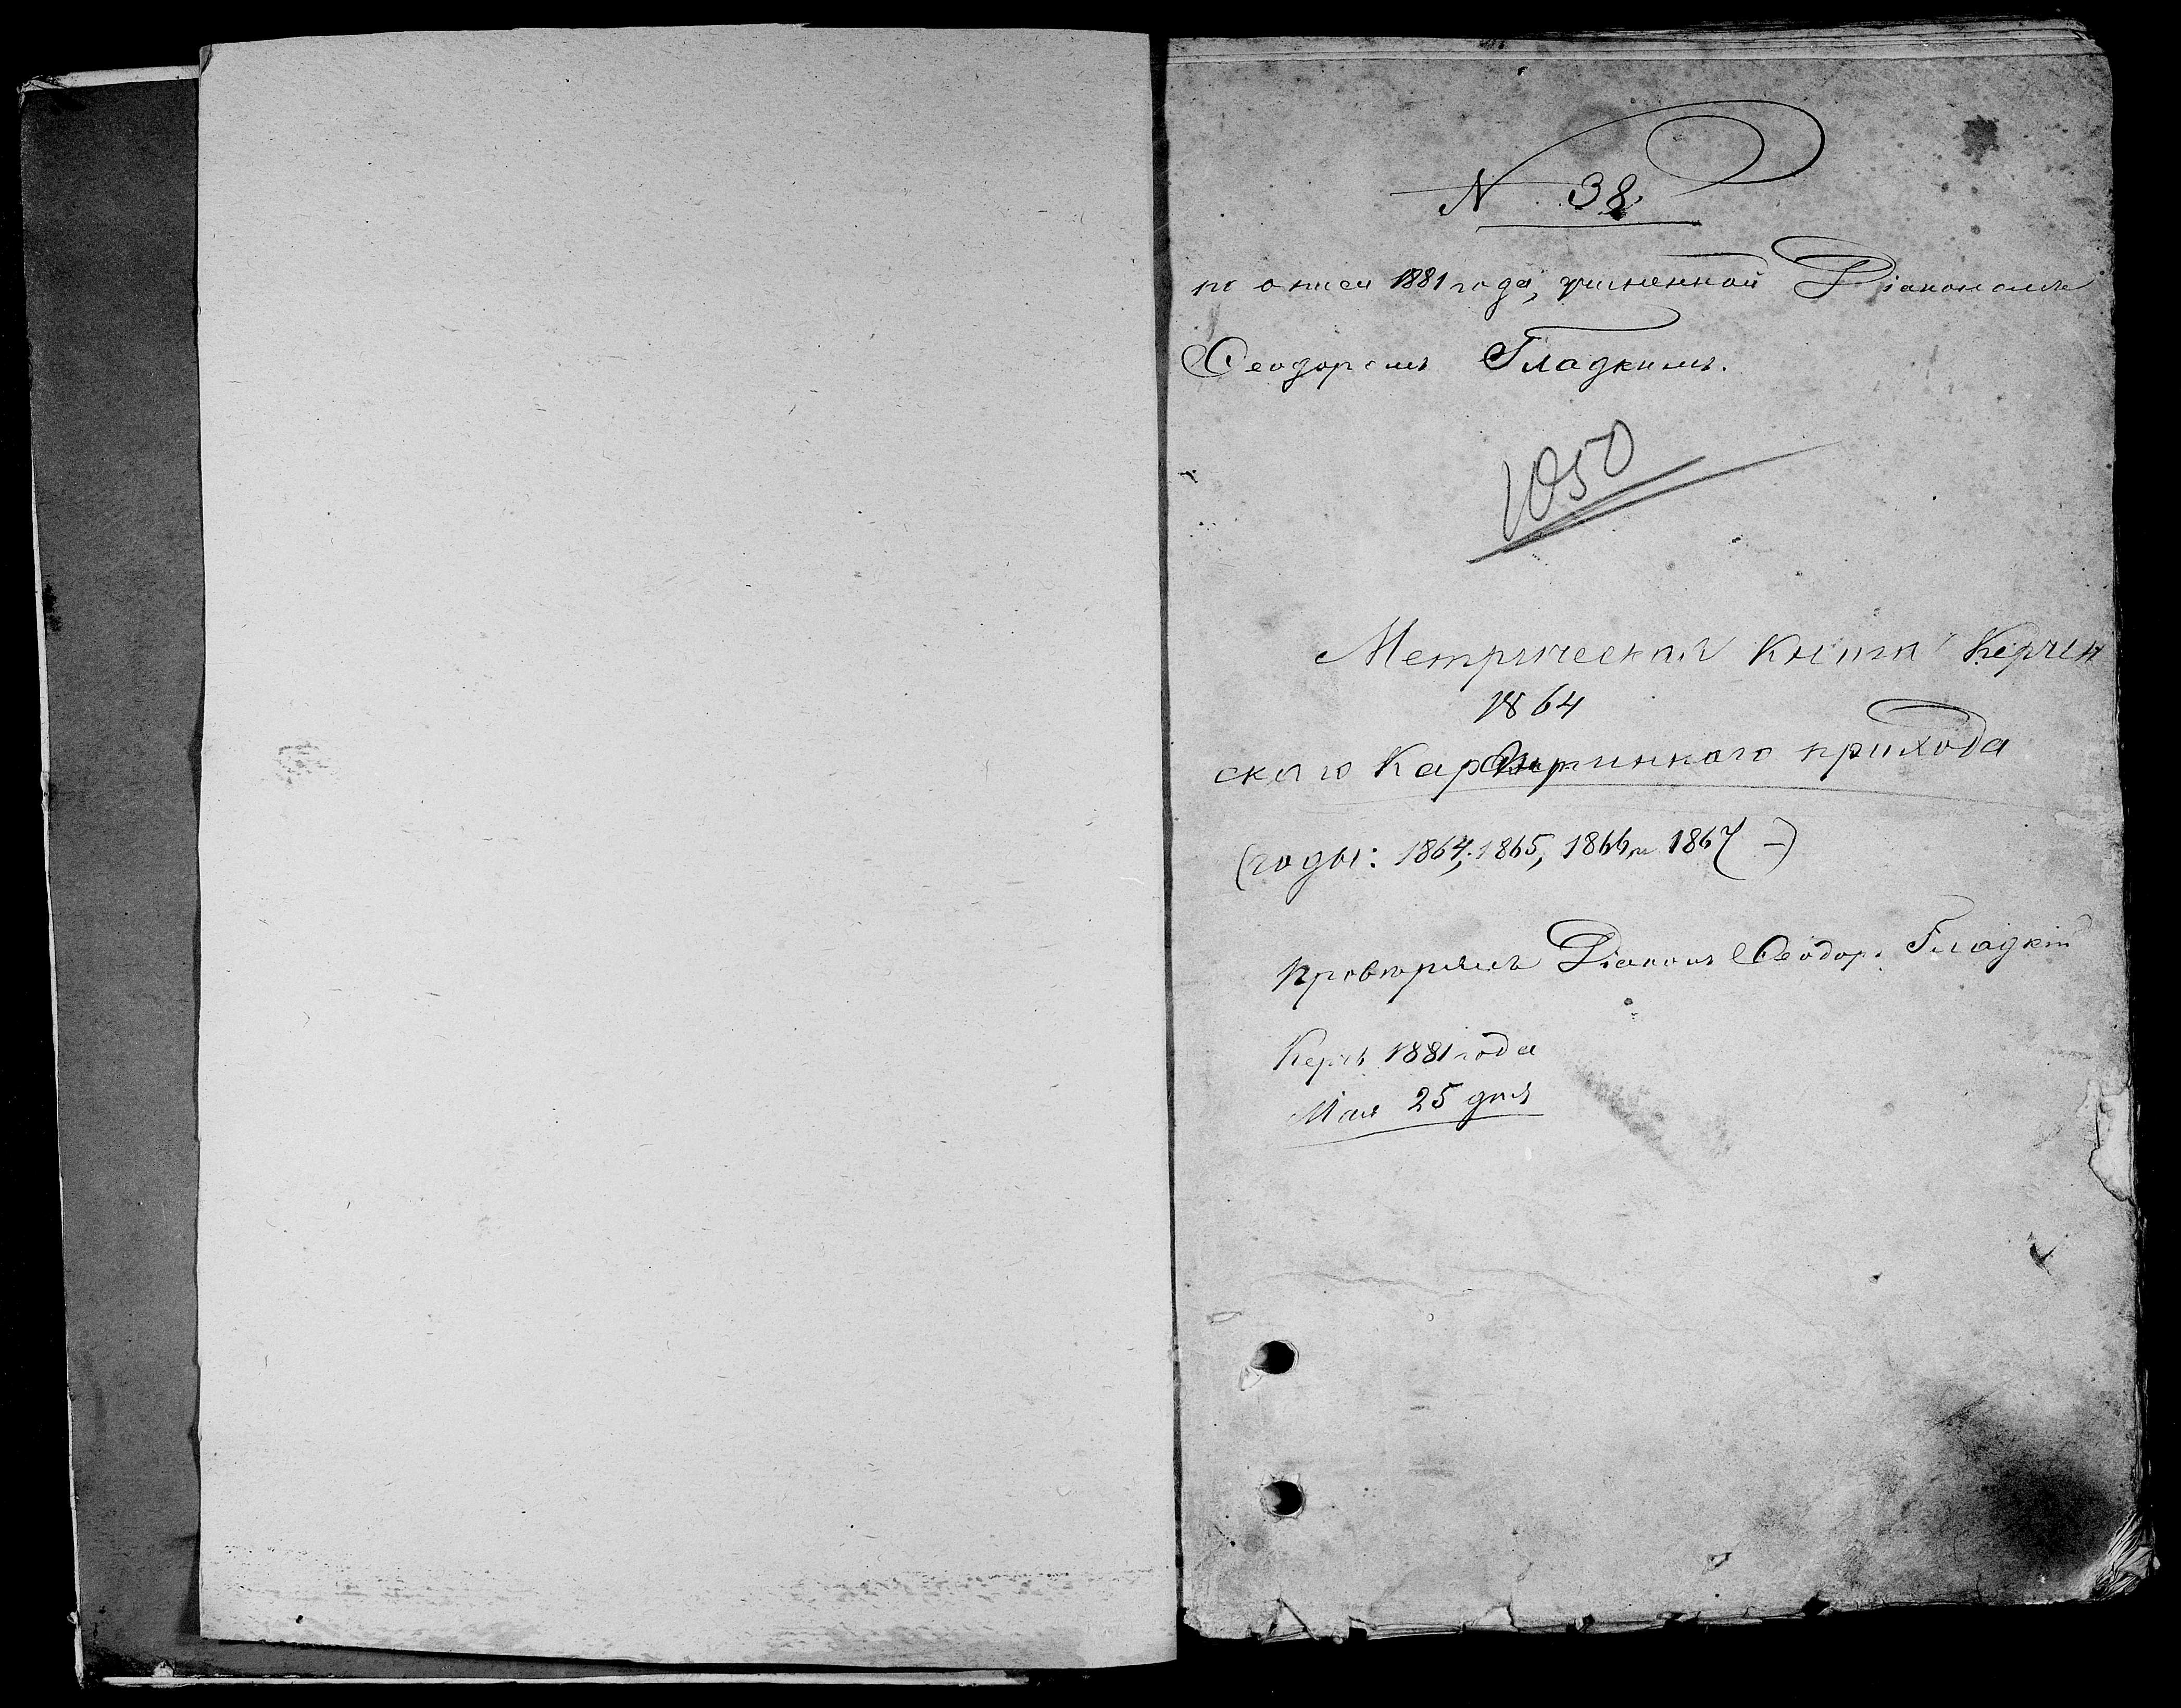 N 38.
по описи 1881 года, учиненной Діакономъ
Ѳеодоромъ Гладкимъ.
1050
Метрическая книга Керчен
1864
скаго Карантиннаго прихода
(годы: 1864, 1865, 1866 и 1867 –)
Провѣрялъ Діаконъ Ѳеодоръ Гладкій
Керчь 1881 года
Мая 25 дня